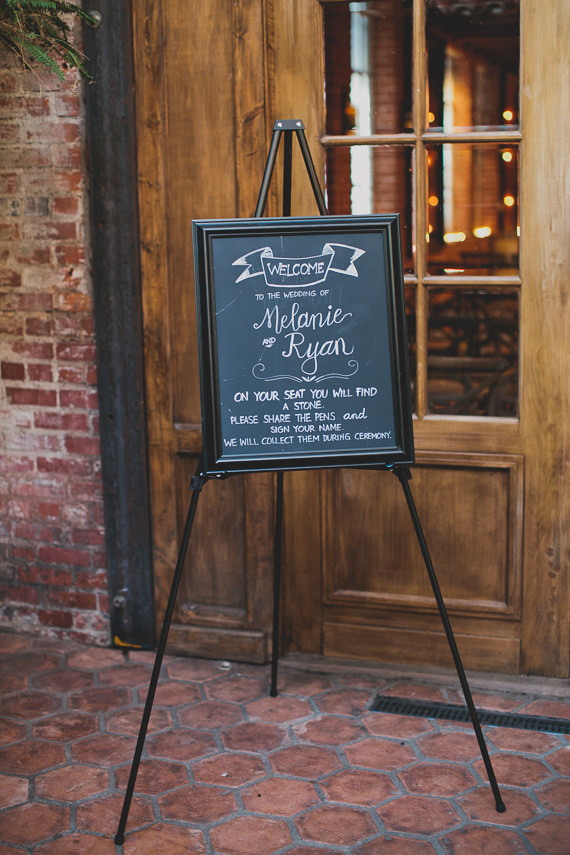 WELCOME
TO THE WEDDING OF
Melanie
AND
Ryan
ON YOUR SEAT YOU WILL FIND
A STONE.
PLEASE SHARE THE PENS and
SIGN YOUR NAME.
WE WILL COLLECT THEM DURING CEREMONY.